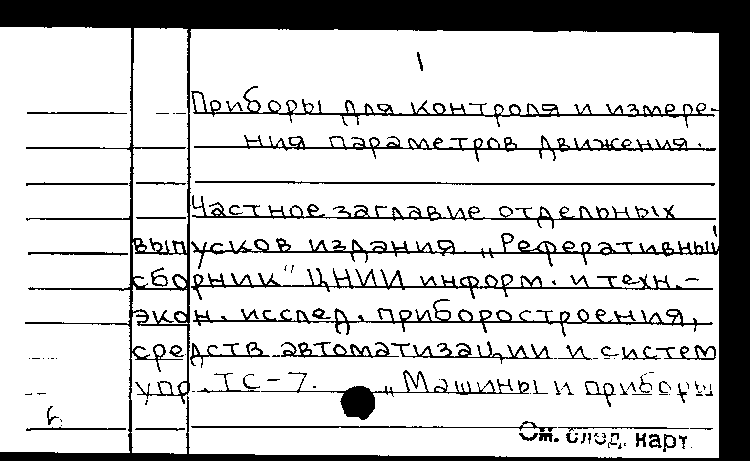 1
Приборы для контроля и измере-
ния параметров движения.
Частное заглавие отдельных
выпусков издания „Реферативный
сборник" ЦНИИ информ. и техн.-
экон. исслед. приборостроения,
средств автоматизации и систем
упр. ТС-7. „Машины и приборы
См. след. карт.